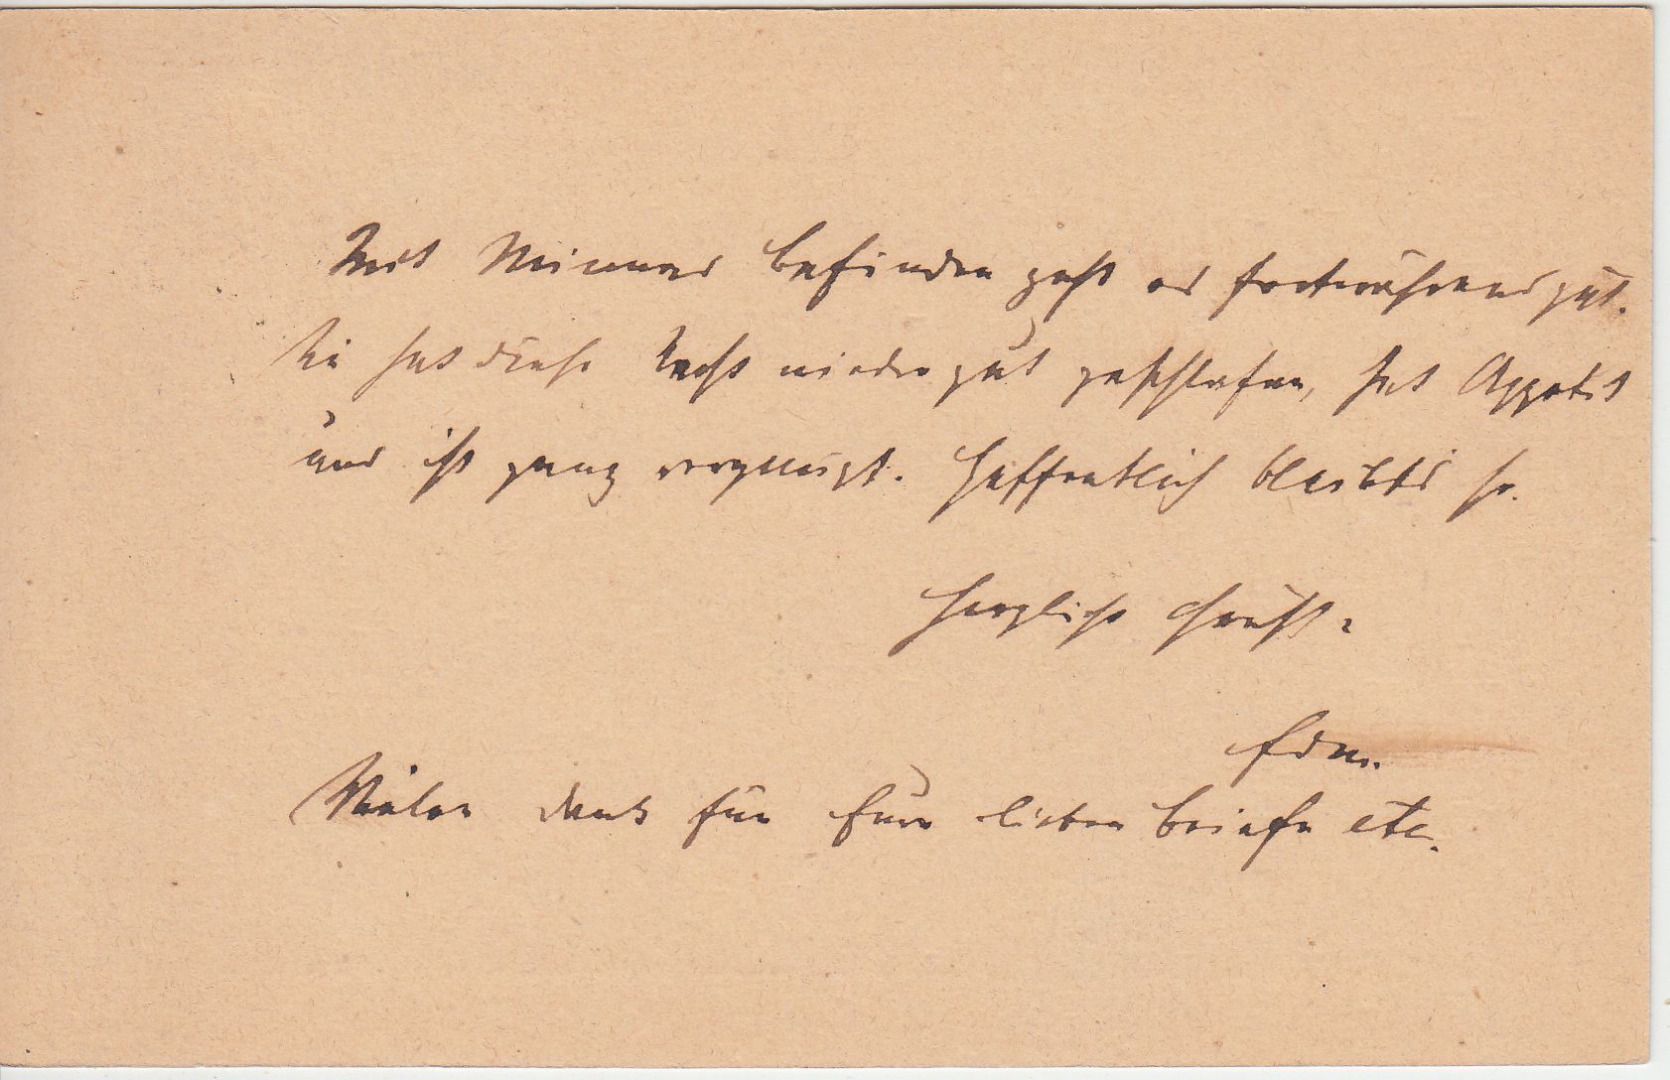 Mit Minnas Befinden geht es fortwährend gut.
Sie hat diese Nacht wieder gut geschlafen, hat Appetit
und ist ganz vergnügt. Hoffentlich bleibts so.
Herzliche Grüße
Edm.
Vielen Dank für Eure lieben Briefe etc.